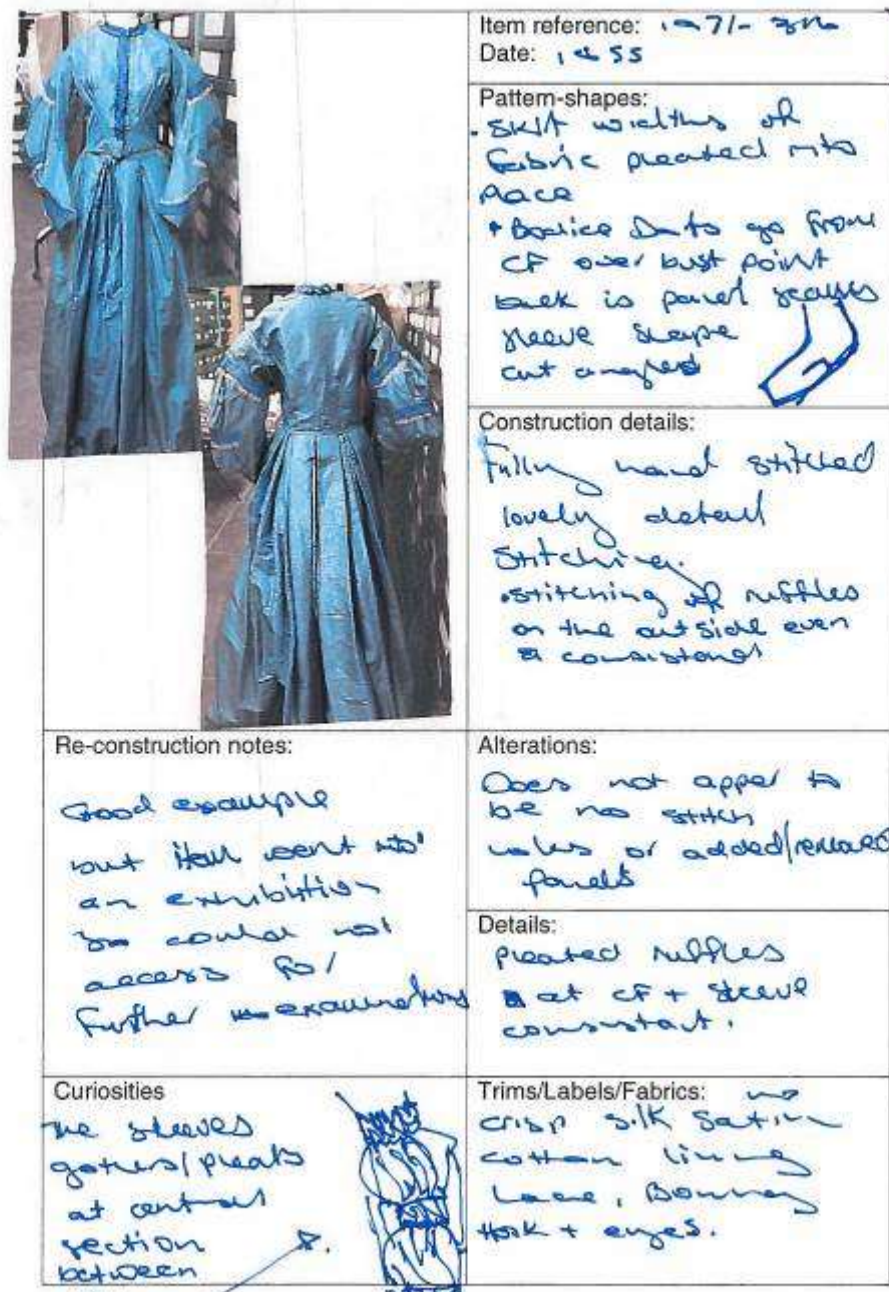 Item reference: 197/-
Date: 1855
Pattern-shapes:
• Skirt widths of
fabric pleated into
place
• Bodice Darts go from
CF over bust point
back is panel seams
sleeve shape
cut angled
Construction details:
Fully hand stitched
lovely detail
Stitching.
• stitching of ruffles
on the outside even
& consistant
Re-construction notes:
Good example
but item went into
an exhibition
so could not
access for
further examinations
Alterations:
Does not appear to
be no stitch
holes or added/removed
panels
Details:
pleated ruffles
at CF + sleeve
consistant.
Curiosities
the sleeves
gathers/pleats
at central
section
between
Trims/Labels/Fabrics:
crisp silk satin
cotton lining
Lace, Boning
Hook + eyes.